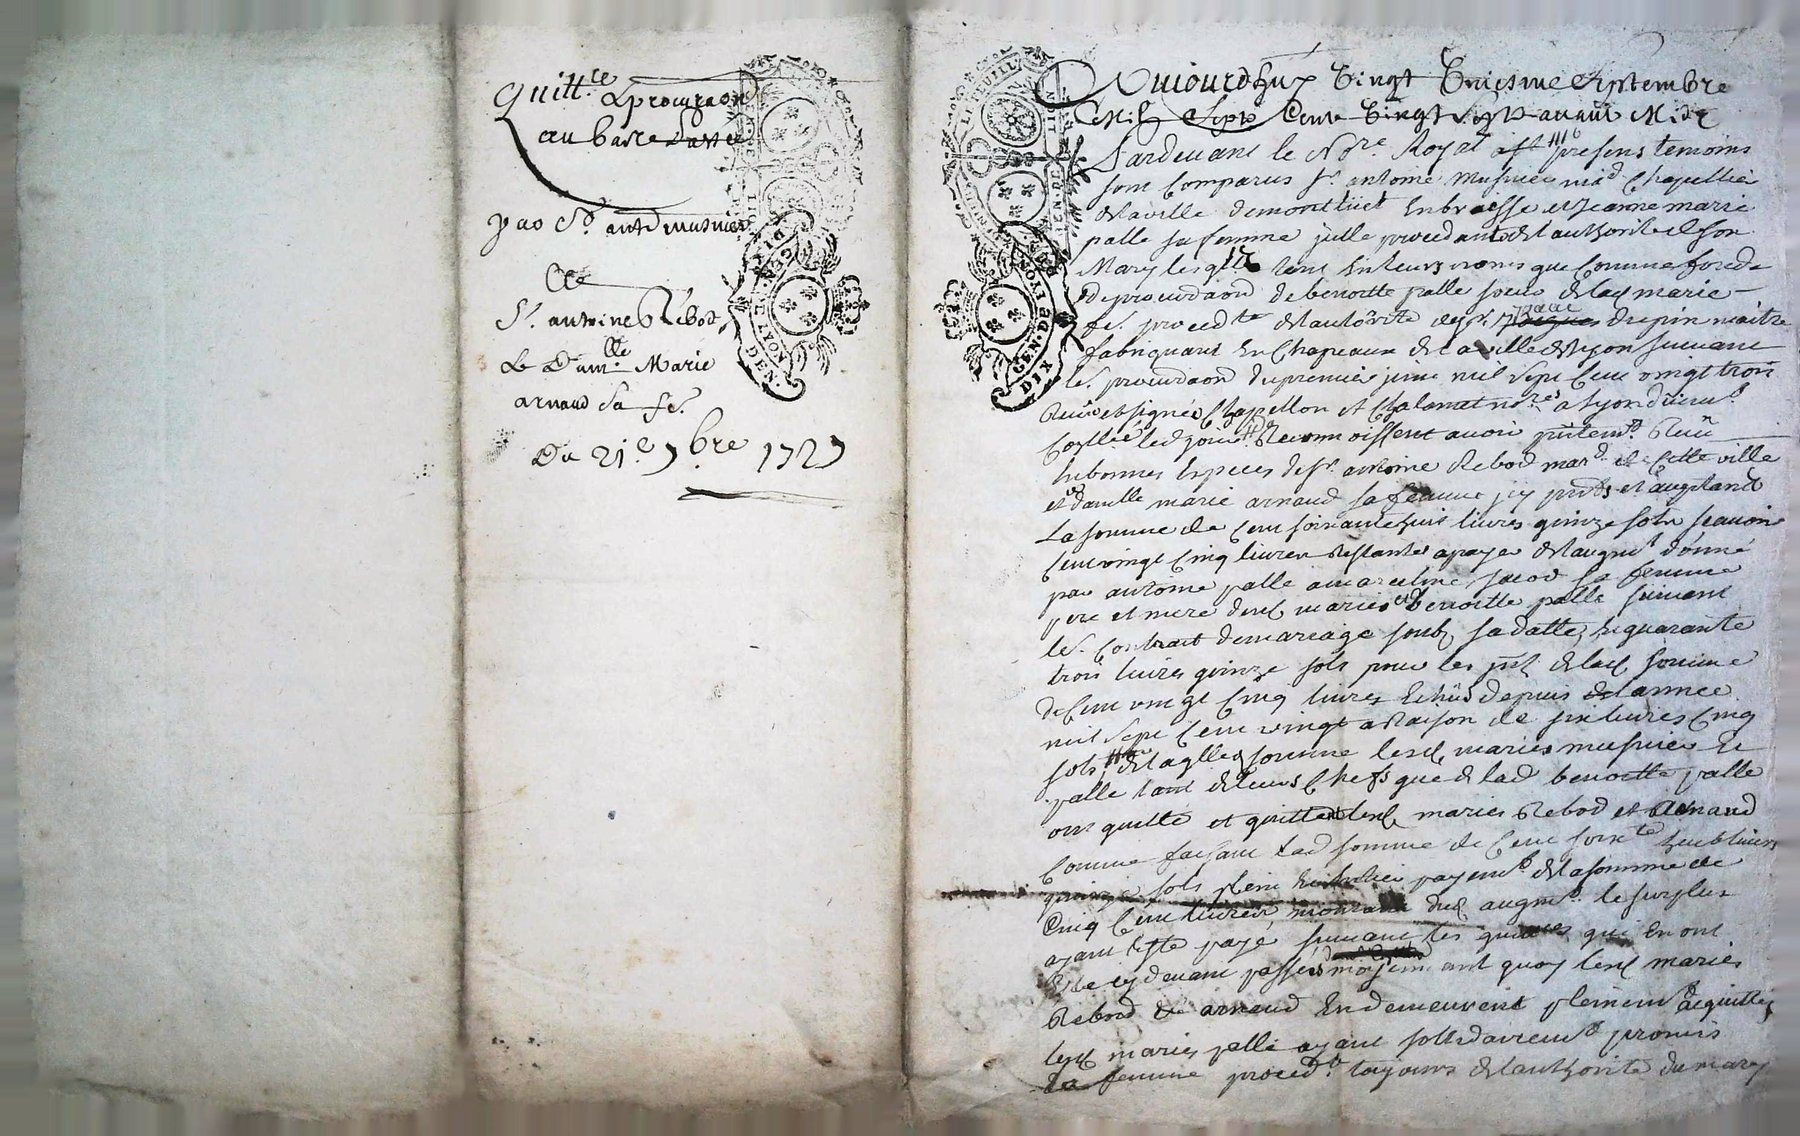 Quitt.ce & procura͠on
au bas de lad.e
par Sr. ant.e musnier
a
Sr. antoine Rebod
& Dam.lle Marie
arnaud sa fe.
Du 21.e 7bre 1727
GEN. DE LYON
DIX
LA FEUILL
GEN. DE LION
GEN. DE LYON
DIX
Aujourdhuy vingt uniesme septembre
mil sept cent vingt sept avant midy
Pardevant le No.re Royal & presens temoins
sont comparus Sr. antoine musnier mar.d chapellier
de la ville de montluel en bresse et Jeanne marie
palle sa femme icelle procedant de l'authorité de son
Mary lesq.ls tant en leurs noms que comme fondé
de procura͠on de benoitte palle soeur de lad. marie
fe. proced.te de l'autorité de Sr. Isaac drepin maitre
fabriquant en chapeaux de la ville de lyon suivant
le. procura͠on du premier juin mil sept cent vingt trois
Reçeu et signée Chapellon et Chalamet no.res a Lyon
led. jour Reconnoissent avoir p͠ntem.t Reçu
en bonnes especes de Sr. antoine Rebod mar.d de cette ville
et dam.lle marie arnaud sa femme icy p͠nts et acceptants
La somme de cent soixante huit livres quinze sols scavoir
cent vingt cinq livres restantes a payer de l'augm.t donné
par antoine palle a marceline jacod sa femme
pere et mere desd. maries et benoitte palle suivant
le. Contrait de mareage soub sa datte, & quarante
trois livres quinze sols pour les de lad. somme
de cent vingt cinq livres echus depuis l'annee
mil sept cent vingt a Raison de six livres cinq
sols de laq.lle somme lesd. maries musnier &
palle tant de leurs chefs que de lad. benoitte palle
ont quitté et quittent lesd. maries Rebod et arnaud
comme faisant lad. somme de cent soix.te huit livres
quinze sols plein & entier payem.t de la somme de
cinq cent livres dud. augm.t le surplus
ayant esté payé suivant les quitt.ces qui en ont
esté cy devant passées moyennant quoy lesd. maries
Rebod & arnaud en demeurent pleinem.t acquittes
lesd. maries palle ayant sollidairem.t promis
La femme proced.t toujours de l'authorité du mary